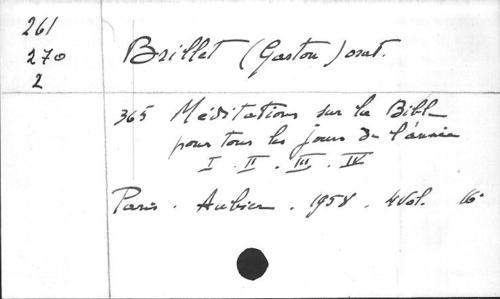 261
270
2
Brillet (Gaston) orat.
365 Méditations sur la Bibl
pour tous les jours de l'année
I . II . III . IV
Paris . Aubier . 1958 . 4 Vol. 16°